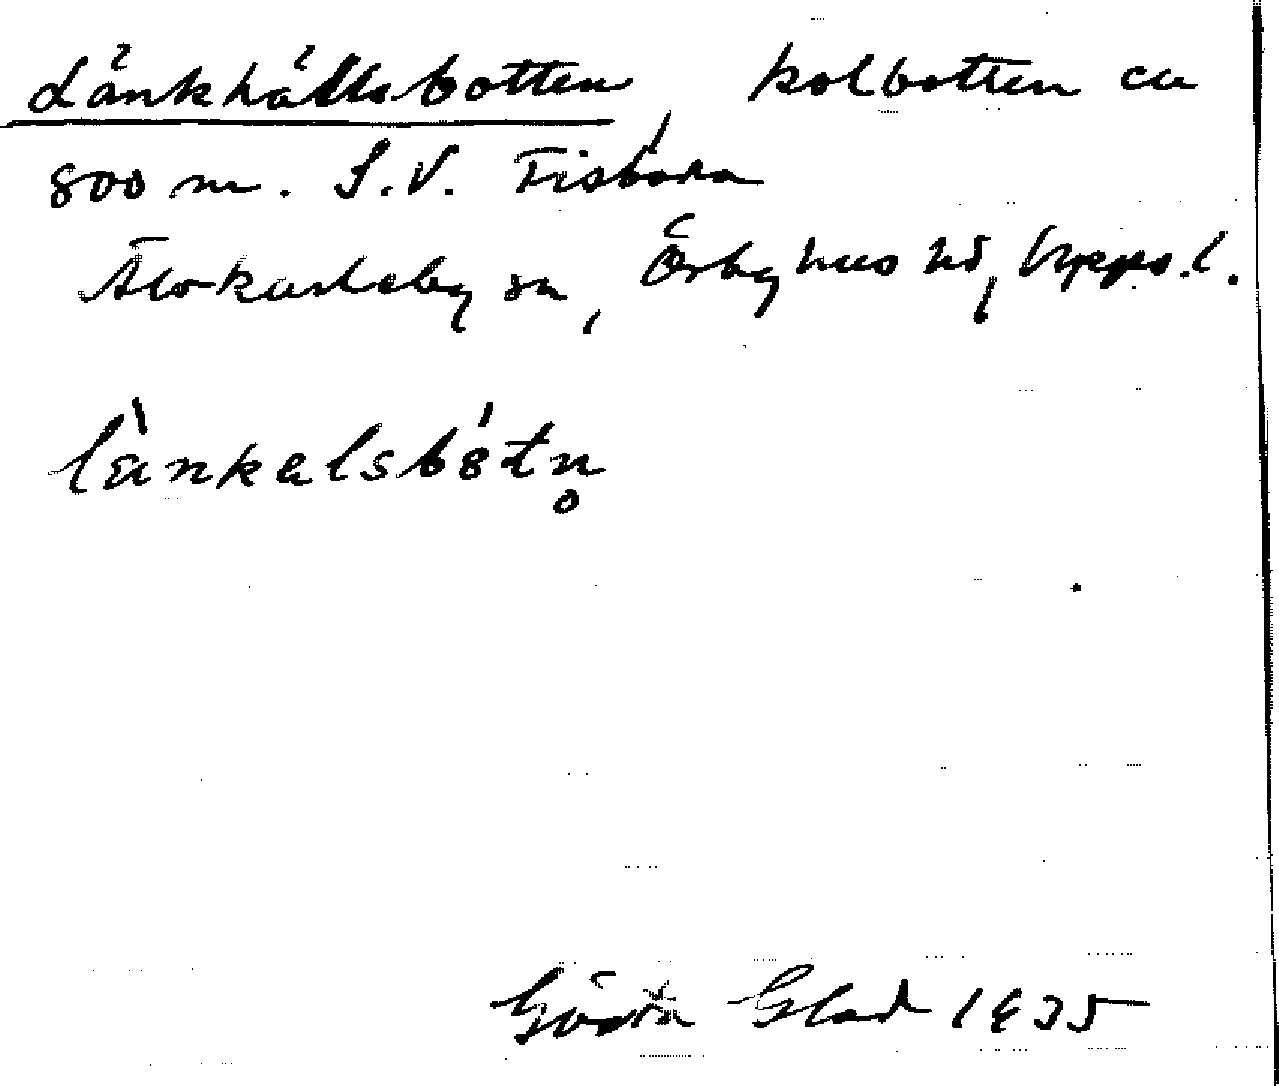 Länkhållsbotten, kolbotten ca
800 m. S.V. Tisbara
Älvkarleby sn, Örbyhus hd, Upps. l.
länkalsbòtn̥
Gösta Glad 1935